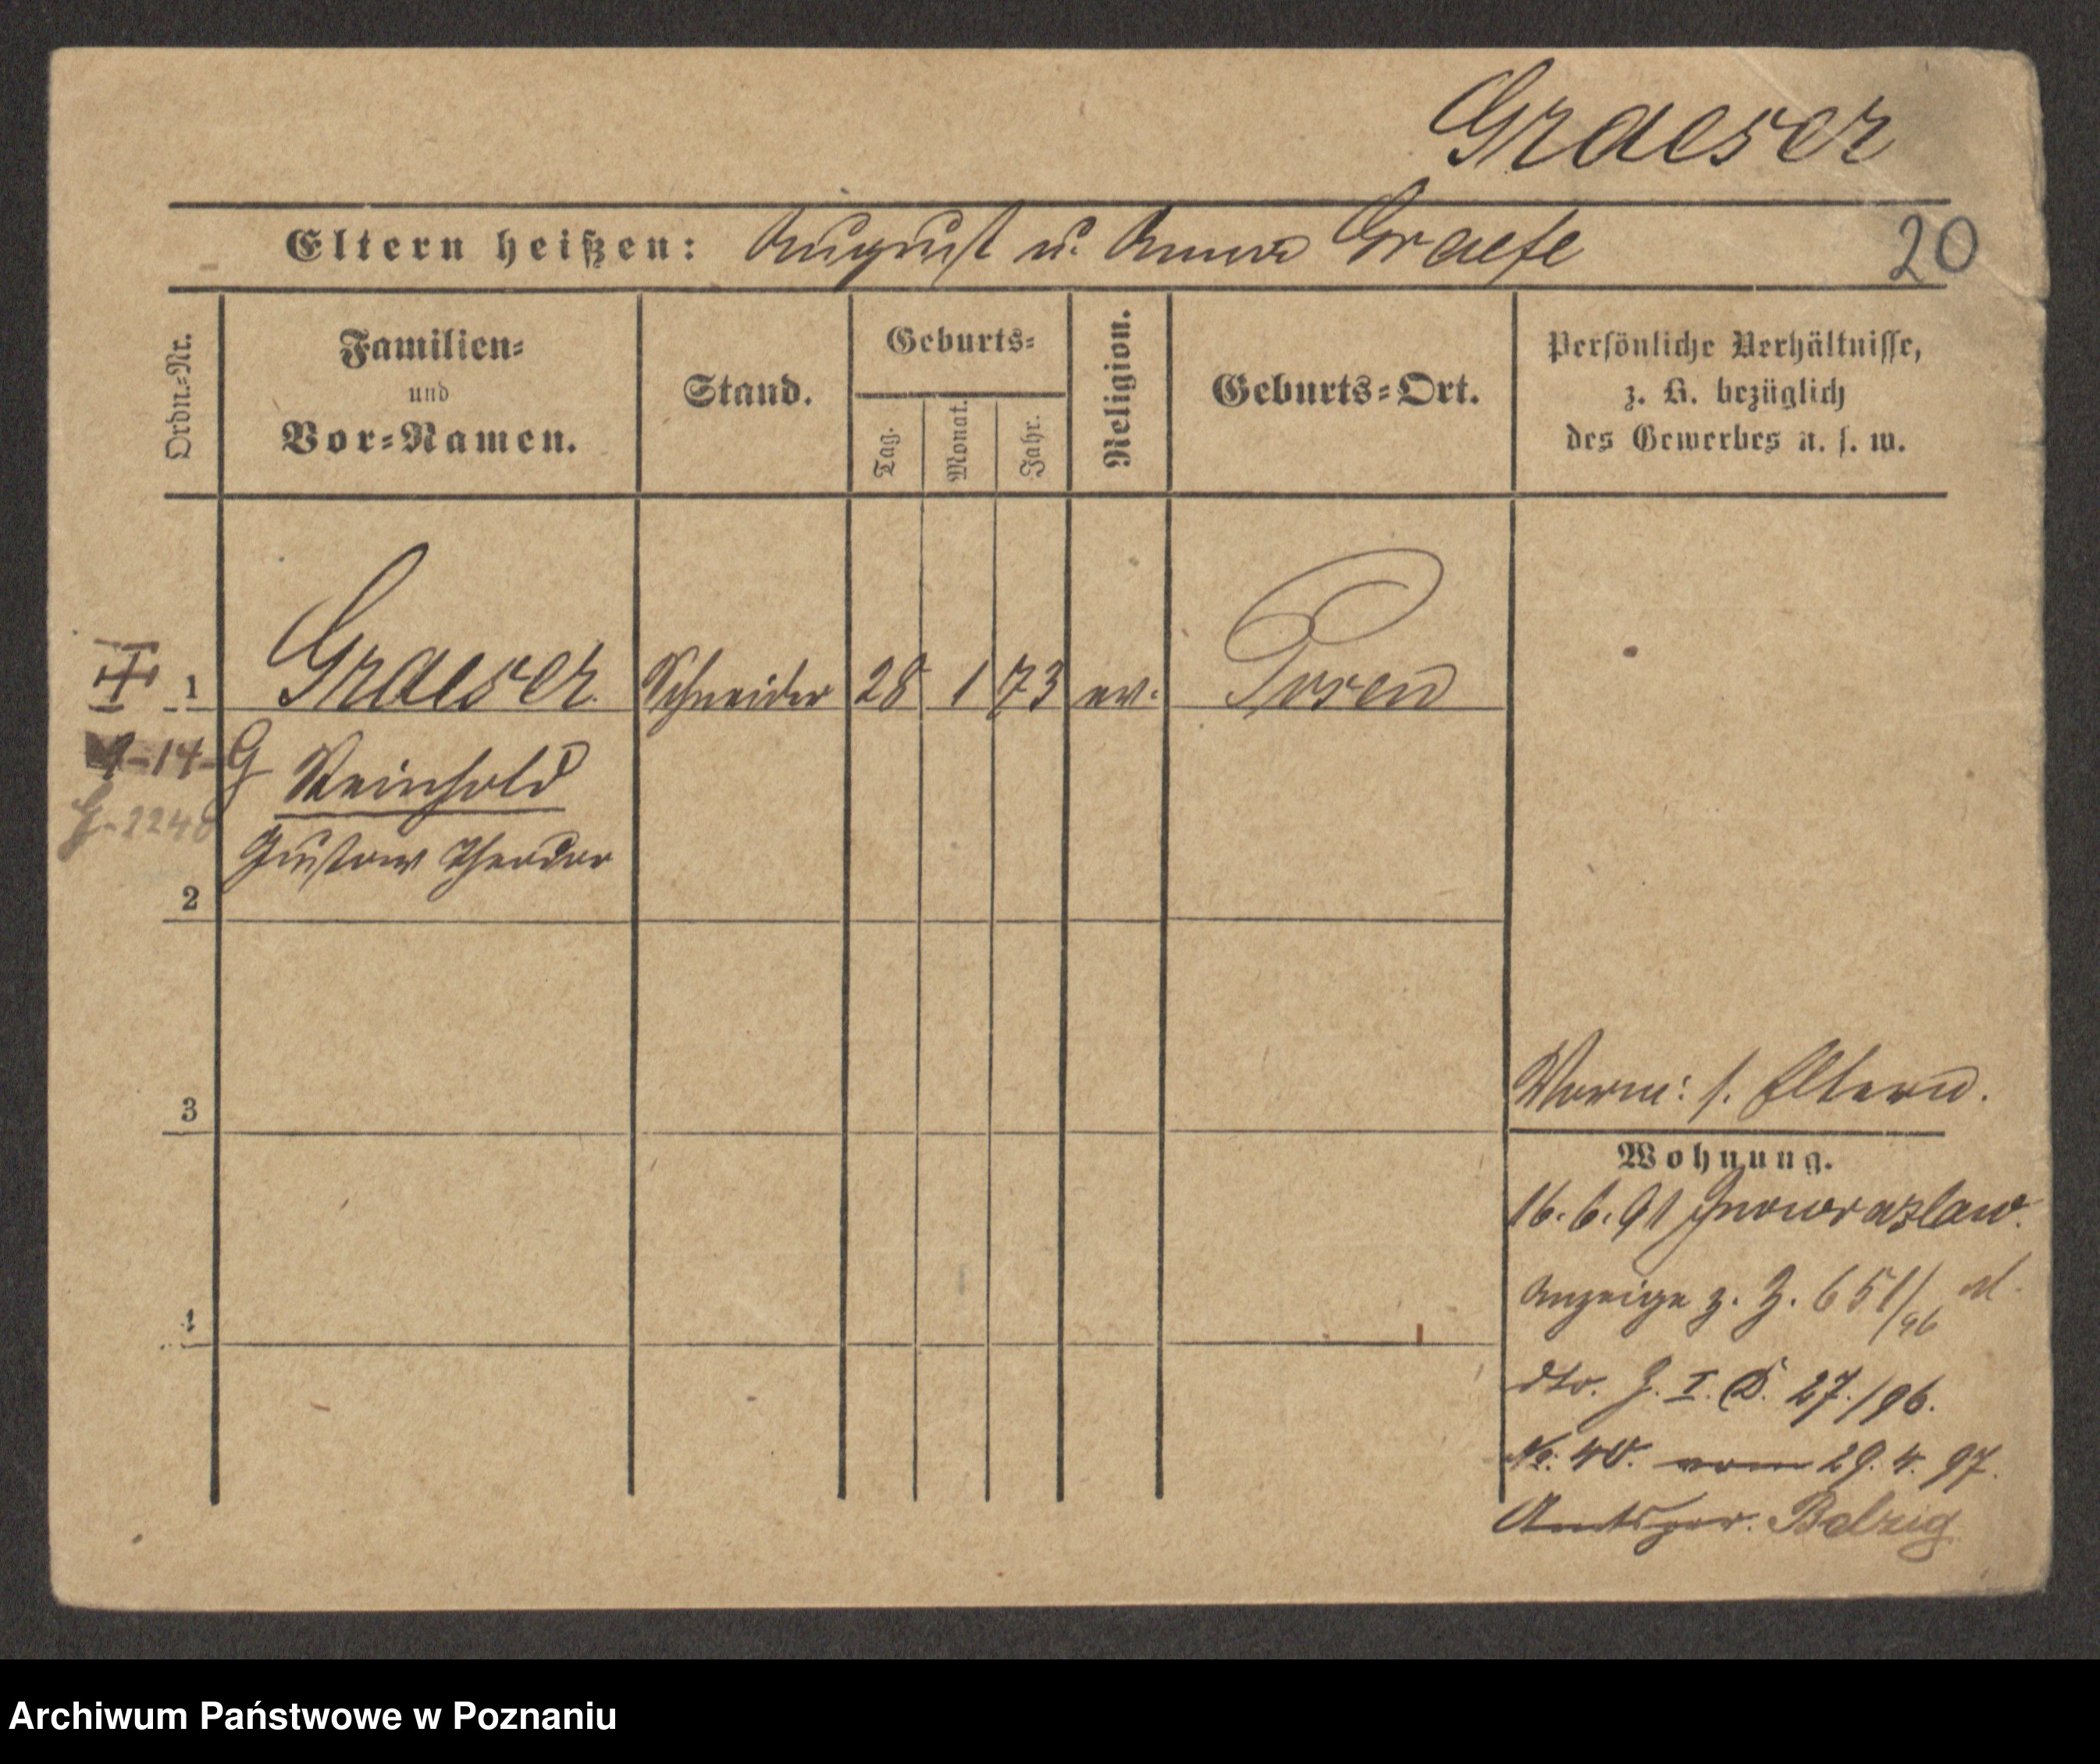 Graeser
Eltern heißen: August u. Anna Graefe
20
Ordn.-Nr.
Familien-
und
Vor-Namen.
Stand.
Geburts-
Tag.
Monat.
Jahr.
Religion.
Geburts-Ort.
Persönliche Verhältnisse,
z. B. bezüglich
des Gewerbes u. s. w.
1 Graeser Schneider 28 1 73 ev. Posen
9-14-G Reinhold
G-2248
Gustav Theodor
2
3
Vorm: s. Eltern.
Wohnung.
16.6.91 Inowrazlaw.
4
Anzeige z. Z. 651/96
dto. J. I. D. 27./96.
No. 40. vom 29.4.97.
Amtsger. Belzig
Archiwum Państwowe w Poznaniu